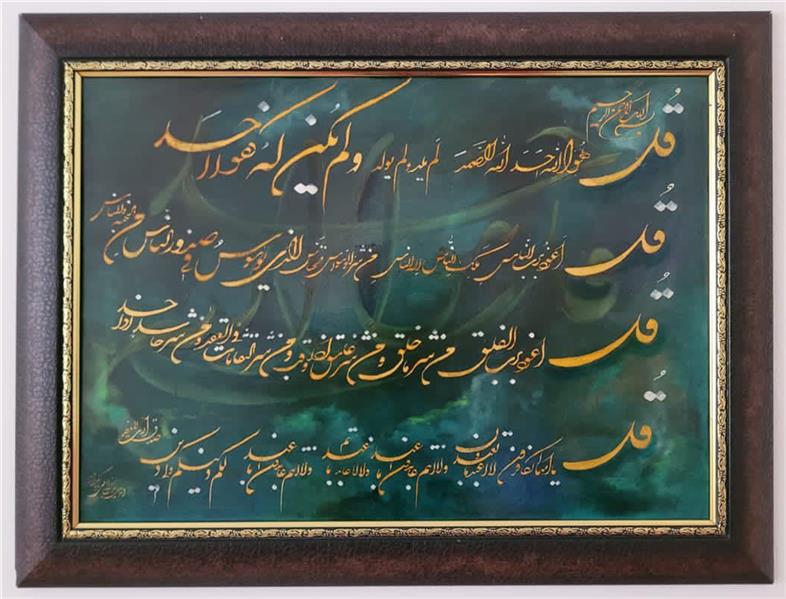 بسم الله الرحمن الرحیم
قل هو الله احد الله الصمد لم یلد و لم یولد و لم یکن له کفوا احد
قل اعوذ برب الناس ملک الناس اله الناس من شر الوسواس الخناس الذی یوسوس فی صدور الناس من الجنه و الناس
قل اعوذ برب الفلق من شر ما خلق و من شر غاسق اذا وقب و من شر النفاثات فی العقد و من شر حاسد اذا حسد
قل یا ایها الکافرون لا اعبد ما تعبدون و لا انتم عابدون ما اعبد و لا انا عابد ما عبدتم و لا انتم عابدون ما اعبد لکم دینکم ولی دین
صدق الله العلی العظیم